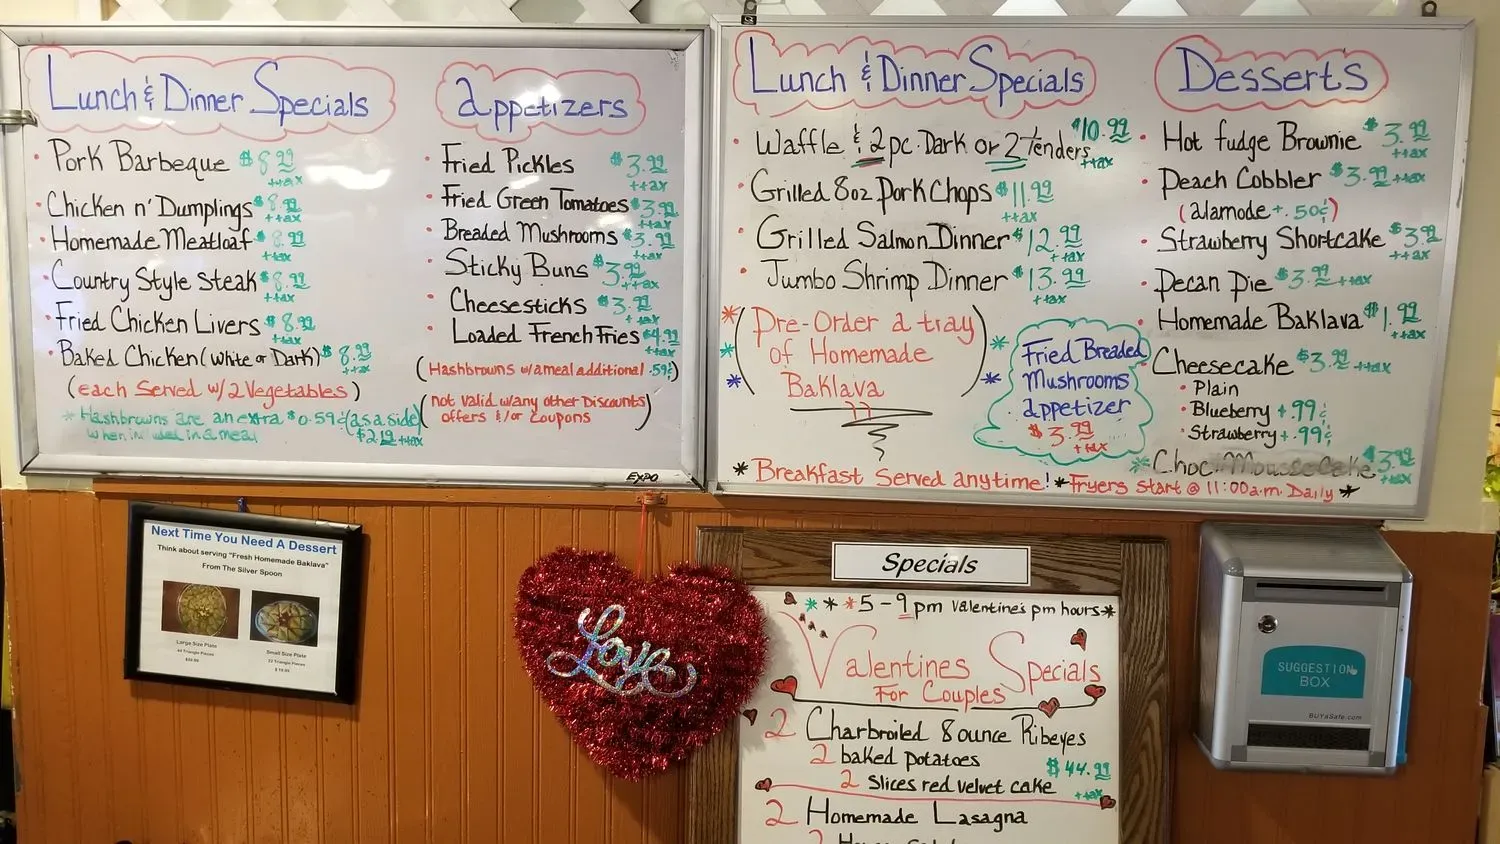 Lunch & Dinner Specials
• Pork Barbeque $8.99 ++ax
• Chicken n' Dumplings $8.99 ++ax
• Homemade Meatloaf $8.99 ++ax
• Country Style Steak $8.99 ++ax
• Fried Chicken Livers $8.99 ++ax
• Baked Chicken (White or Dark) $8.99 ++ax
(Each Served w/2 Vegetables)
* Hashbrowns are an extra $0.59¢ (as a side)
when in a meal $2.19 ++ax
Appetizers
• Fried Pickles $3.99 ++ax
• Fried Green Tomatoes $3.99 ++ax
• Breaded Mushrooms $3.99 ++ax
• Sticky Buns $3.99 ++ax
• Cheesesticks $3.99 ++ax
• Loaded French Fries $4.99 ++ax
(Hashbrowns w/a meal additional .59¢)
(not valid w/any other Discounts
offers &/or Coupons)
EXPO
Lunch & Dinner Specials
• Waffle & 2pc. Dark or 2 Tenders $10.99 ++ax
• Grilled 8oz Pork Chops $11.99 ++ax
• Grilled Salmon Dinner $12.99 ++ax
• Jumbo Shrimp Dinner $13.99 ++ax
* (Pre-Order a tray
* of Homemade
* Baklava) *
Fried Breaded
Mushrooms
appetizer
$3.99 ++ax
* Breakfast Served anytime! * Fryers Start @ 11:00a.m. Daily *
Desserts
• Hot fudge Brownie $3.99 ++ax
• Peach Cobbler $3.99 ++ax
(alamode +.50¢)
• Strawberry Shortcake $3.99 ++ax
• Pecan Pie $3.99 ++ax
• Homemade Baklava $1.99 ++ax
• Cheesecake $3.99 ++ax
• Plain
• Blueberry +.99¢
• Strawberry +.99¢
* Choc Mousse Cake $3.99 ++ax
Next Time You Need A Dessert
Think about serving "Fresh Homemade Baklava"
From The Silver Spoon
Large Size Plate
Small Size Plate
44 Triangle Pieces
22 Triangle Pieces
Love
Specials
* * * 5 - 9 pm Valentine's pm hours *
Valentines Specials
For Couples
2 Charbroiled 8 ounce Ribeyes
2 baked potatoes
2 Slices red velvet cake $44.99 ++ax
2 Homemade Lasagna
SUGGESTION
BOX
BUYaSafe.com